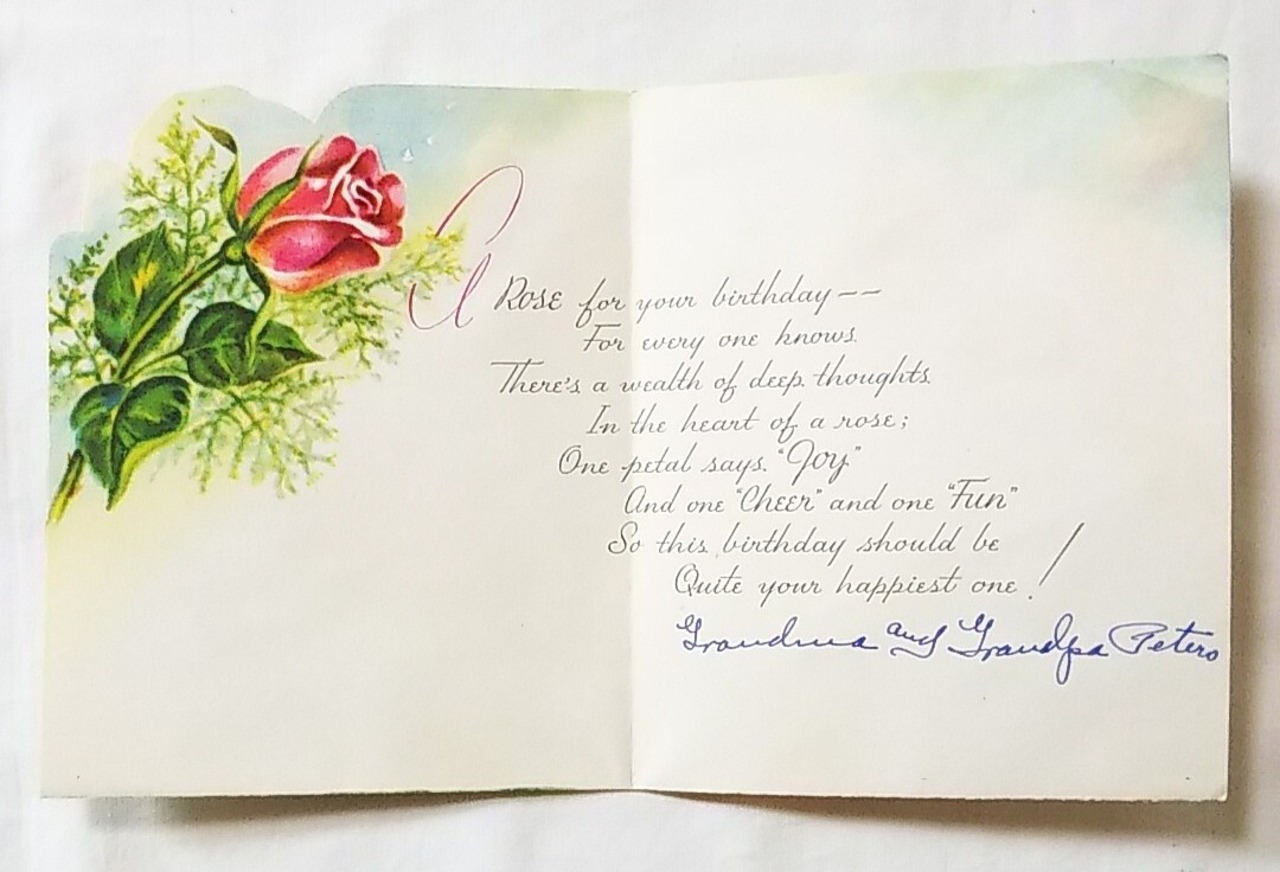 A Rose for your birthday--
For every one knows
There's a wealth of deep thoughts
In the heart of a rose;
One petal says "Joy"
And one "Cheer" and one "Fun"
So this birthday should be
Quite your happiest one!
Grandma and Grandpa Peters